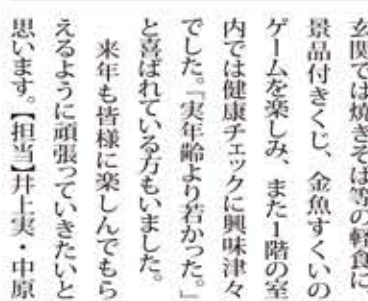 玄関では焼きそば等の軽食に
景品付きくじ、金魚すくいの
ゲームを楽しみ、また1階の室
内では健康チェックに興味津々
でした。「実年齢より若かった。」
と喜ばれている方もいました。
来年も皆様に楽しんでもら
えるように頑張っていきたいと
思います。【担当】井上実・中原